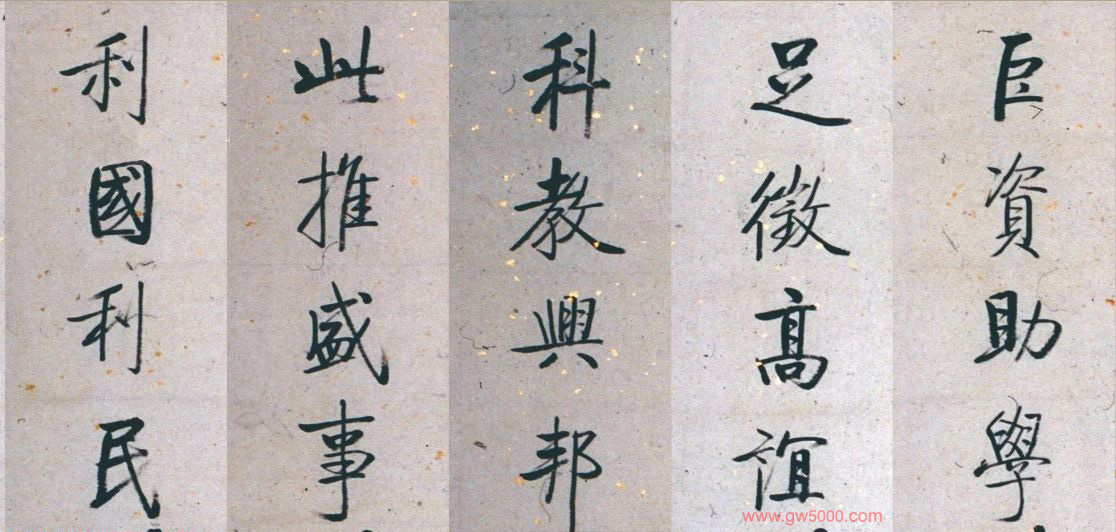 巨資助學
足徵高誼
科教興邦
此推盛事
利國利民
www.gw5000.com